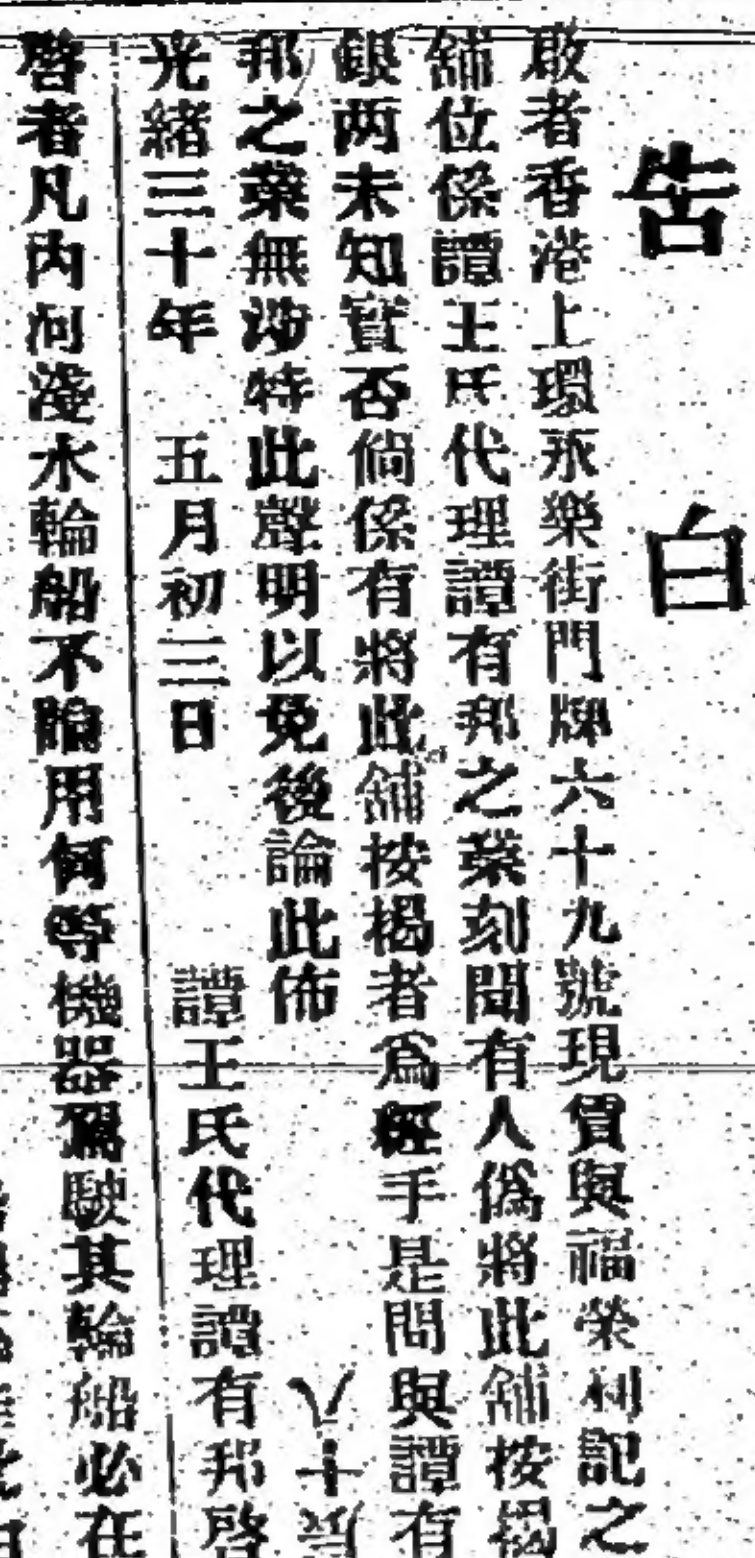 告白
啟者香港上環永樂街門牌六十九號現賃與福榮利記之
舖位係譚王氏代理譚有邦之業刻聞有人偽將此舖按揭
銀两未知實否倘係有將此舖按揭者為經手是問與譚有
邦之業無涉特此聲明以免後論此佈
八十
光緒三十年 五月初三日 譚王氏代理譚有邦啓
啓者凡内河淺水輪船不論用何等機器駕駛其輪船必在